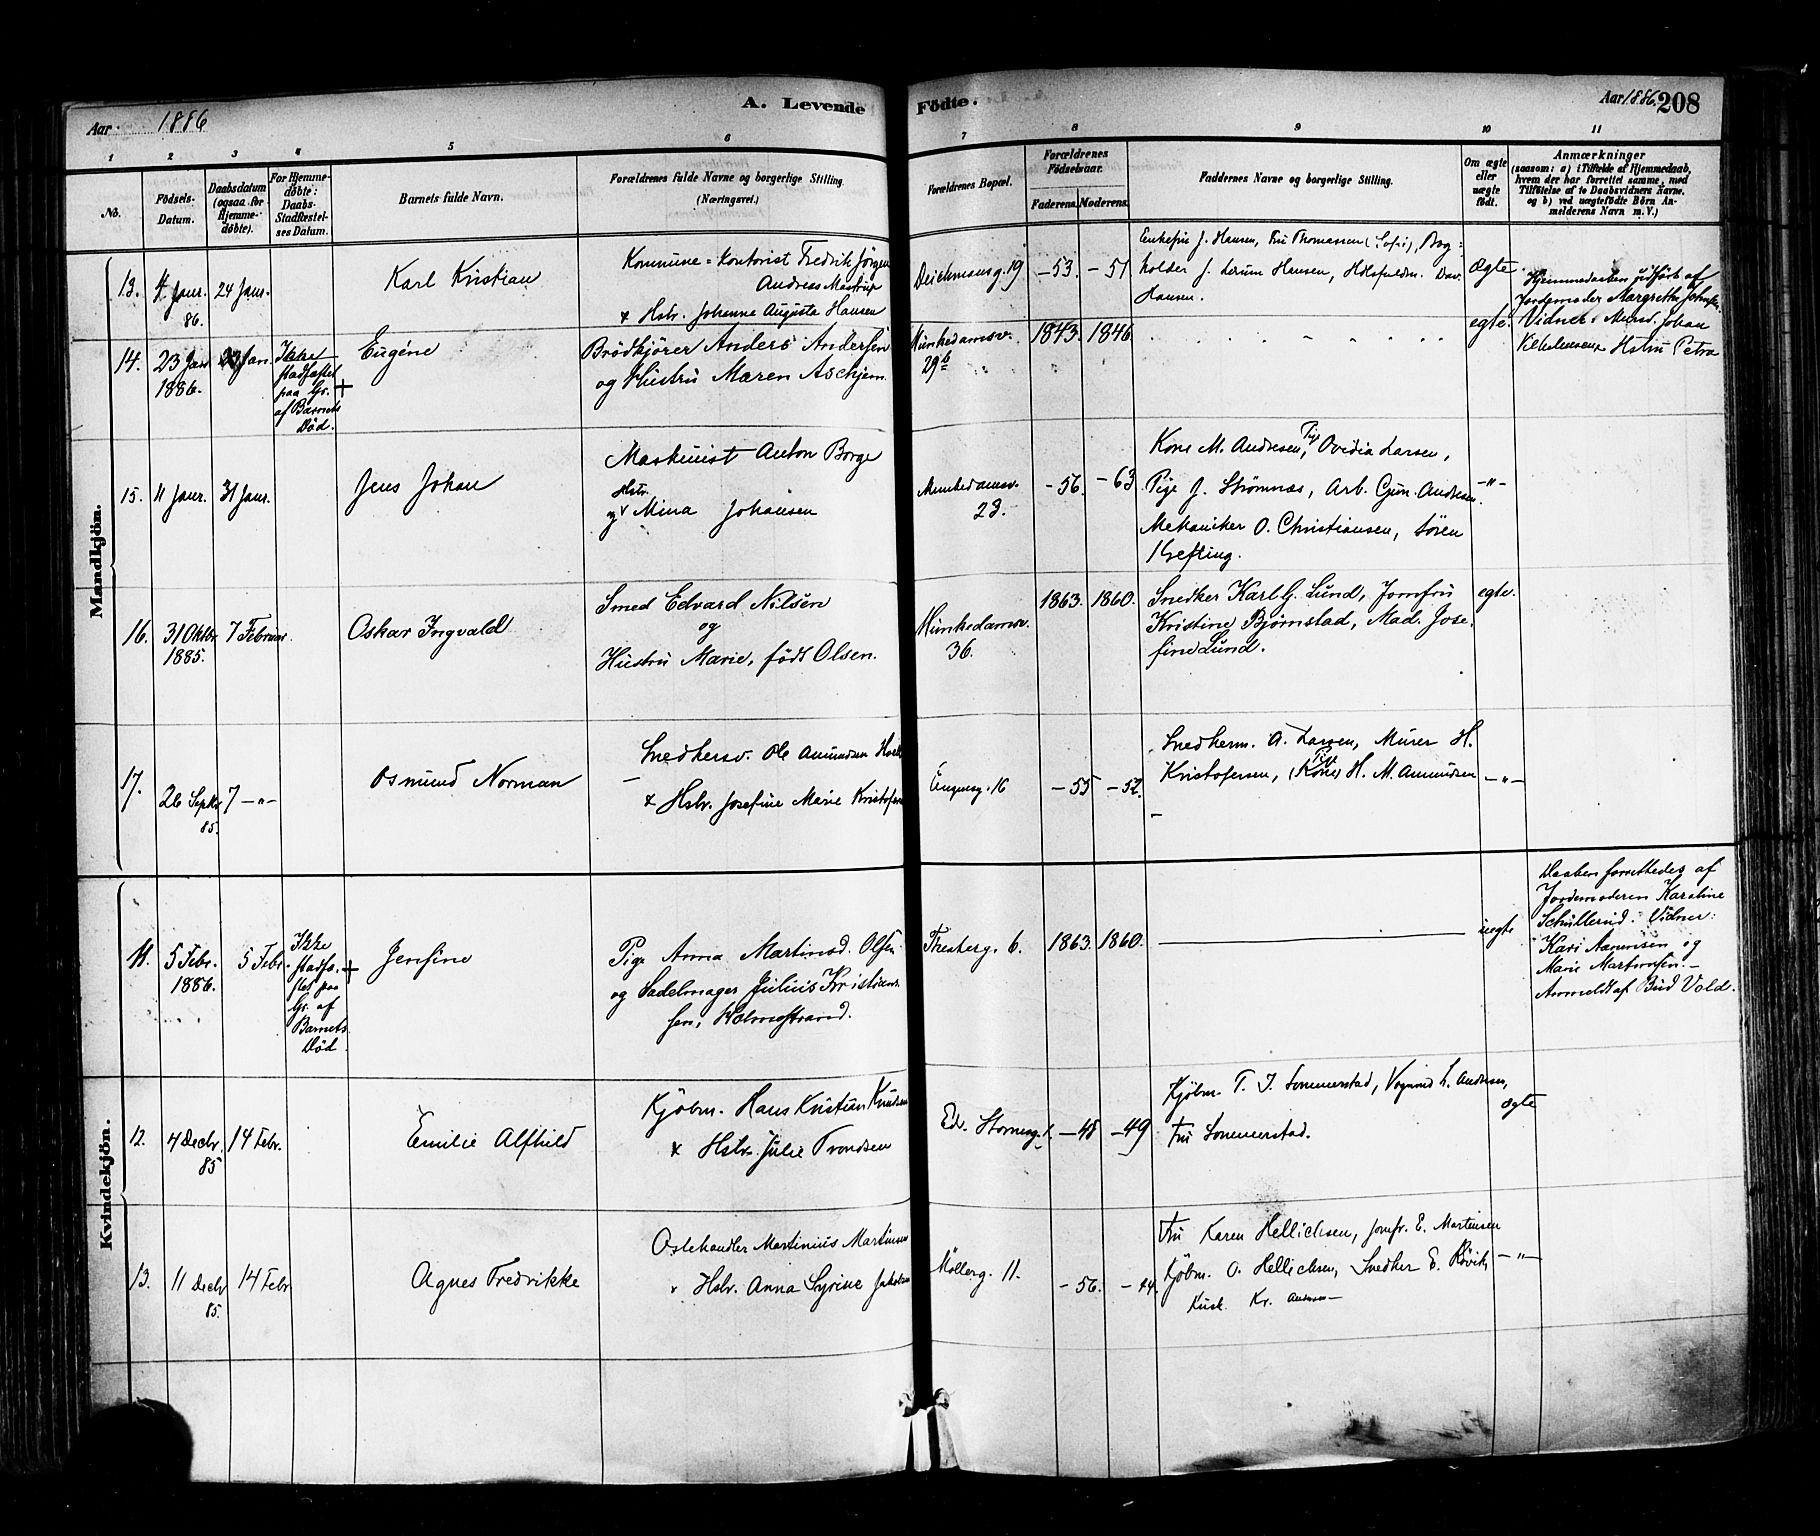 Aar 1886
A. Levende
Födte.
Aar 1886. 208
1 2 3 4 5 6 7 8 9 10 11
No.
Födsels-
Datum.
Daabsdatum
(ogsaa for
Hjemme-
döbte).
For Hjemme-
döbte:
Daabs-
Stadfæstel-
ses Datum.
Barnets fulde Navn.
Forældrenes fulde Navne og borgerlige Stilling.
(Næringsvei.)
Forældrenes Bopæl.
Forældrenes
Födselsaar.
Faderens. Moderens.
Faddernes Navne og borgerlige Stilling.
Om ægte
eller
uægte
födt.
Anmærkninger
(saasom: a) i Tilfælde af Hjemmedaab,
hvem der har forrettet samme, med
Tilföielse af to Daabsvidners Navne,
og b) ved uægtefödte Börn An-
melderens Navn m. V.)
Mandkjön.
13.
4 Janr.
86.
24 Janr.
Karl Kristian
Kommune-Kontorist Fredrik Jörgen
Andreas Mastrup
& Hstr. Johanne Augusta Hansen
Deichmansg. 19
-53. -51
Enkefru J. Hansen, Fru Thomassen (Sofie), Bog-
holder J. Lerum Hansen,
Hansen.
Ægte.
14.
23 Jan
1886.
Jan.
Ikke
stadfæstet
paa Gr. +
af Barnets
Död.
Eugéne
Brödkjörer Anders Andersen
og Hustru Maren Aschjem.
Munkedamsv.
29b
1843. 1846.
egte.
Hjemmedaaben udfört af
Jordemoder Margrethe
Vidner: Johan
Vilhelmsen & Hstru Petra
15.
11 Janr.
31 Janr.
Jens Johan
Maskinist Anton Borge
Hstr.
og Mina Johansen
Munkedamsv.
23.
-56. -63
Kone M. Andresen, Pige Ovidia Larsen,
Pige J. Strömnæs, Arb. Gun. Andresen.
Mekaniker O. Christiansen, Sören
Gefting.
-"-
16.
31 Oktbr.
1885.
7 Februar
Oskar Ingvald
Smed Edvard Nilsen
og
Hustru Marie, födt Olsen.
Munkedamsv.
36.
1863. 1860.
Snedker Karl G. Lund, Jomfru
Kristine Björnstad, Mad. Jose-
fine Lund.
egte.
17.
26 Septr
85.
7 -"-
Osmund Norman
Snedkersv. Ole Amundsen
& Hstr. Josefine Marie Kristofers
Engensg. 16
-55 -52.
Snedkerm. A. Larsen, Murer H.
Kristofersen, (Kone) Pige H. M. Amundsen
-"-
Kvindekjön.
11.
5 Febr.
1886.
5 Febr.
Ikke
stadfæ-
stet paa
Gr. af
Barnets
Död
+
Jensine
Pige Anna Martinsd. Olsen
og Sadelmager Julius Kristian-
sen, Holmestrand.
Thesberg. 6.
1863. 1860.
uegte
Daaben forrettedes af
Jordemoderen Karoline
Schüllerud. Vidner:
Kari og
Marie Martinsen.
Anmeldt af Bud Vold.
12.
4 Decbr
85
14 Febr.
Emilie Alfhild
Kjöbm. Hans Kristian Knudsen
& Hstr. Julie Trondsen
Ed. Stormsg.
-48 -49
Kjöbm. T. J. Sommerstad, Vognmd L. Andresen,
Fru Sommerstad.
Ægte
13.
11 Decbr
85.
14 Febr
Agnes Fredrikke
Ostehandler Martinius Martinsen
Hstr. Anna Syrine
Möllerg. 11.
-56.
Fru Karen Hellichsen, Jomfr. E. Martinsen
Kjöbm. O. Hellichsen, Snedker E. Rövik,
Kusk Kr. Andersen
-"-